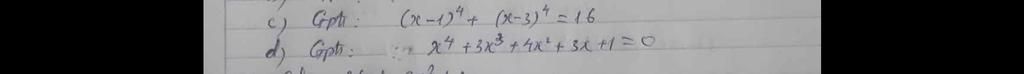 c) Gpt: (x-1)⁴ + (x-3)⁴ = 16
d) Gpt: x⁴ + 3x³ + 4x² + 3x + 1 = 0